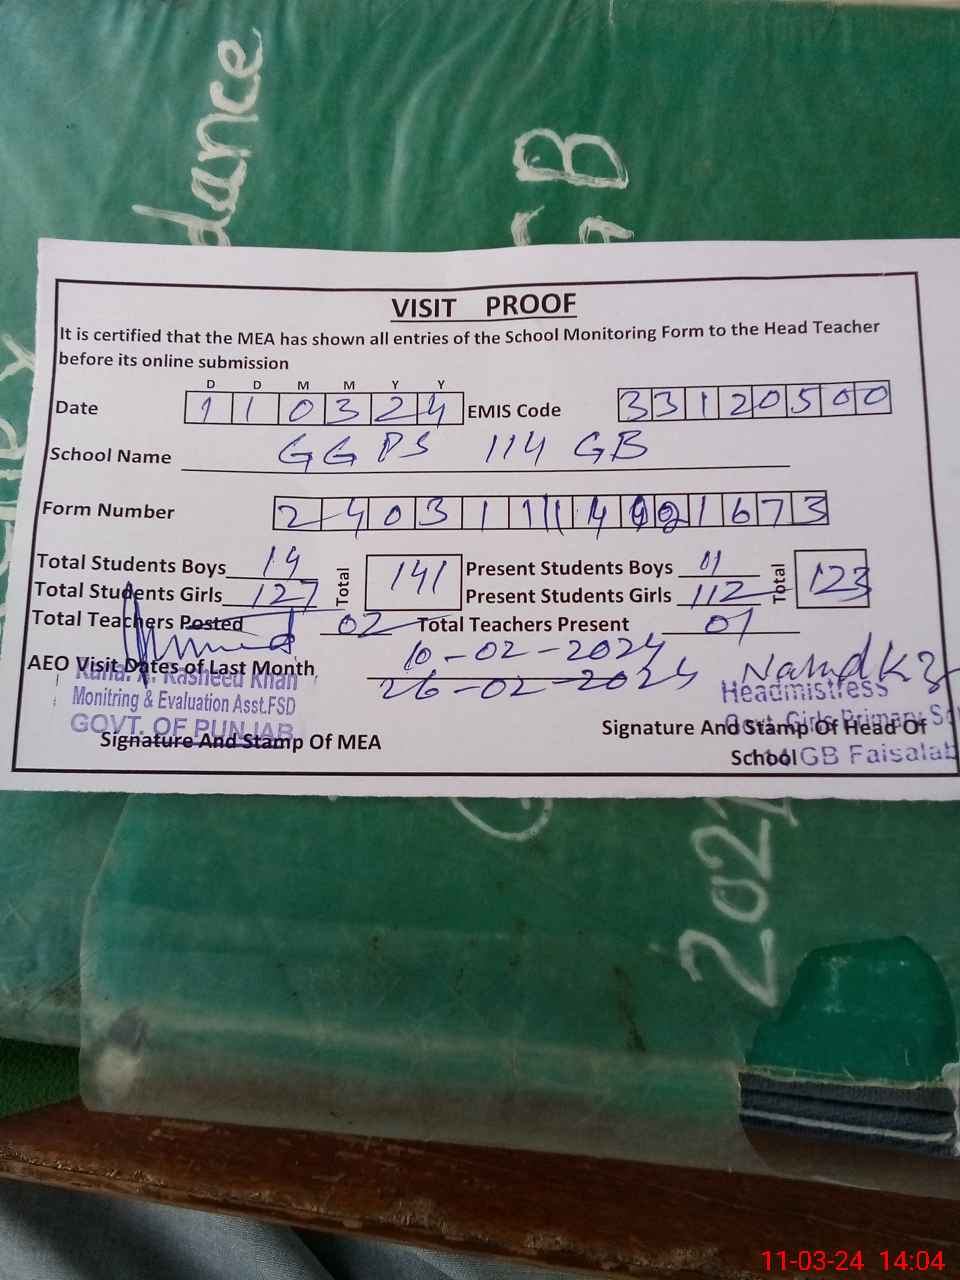 dance
GB
VISIT PROOF
It is certified that the MEA has shown all entries of the School Monitoring Form to the Head Teacher
before its online submission
D D M M Y Y
Date 1 1 0 3 2 4 EMIS Code 3 3 1 2 0 5 0 0
School Name GGPS 114 GB
Form Number 2 4 0 3 1 1 1 4 1 6 7 3
Total Students Boys 14 Total 141 Present Students Boys 11 Total 123
Total Students Girls 127 Present Students Girls 112
Total Teachers Posted 02 Total Teachers Present 01
AEO Visit Dates of Last Month 10-02-2024
26-02-2024
Rasheed Khan
Monitring & Evaluation Asst.FSD
GOVT. OF PUNJAB
Signature And Stamp Of MEA
Headmistress
Govt. Girls Primary
Signature And Stamp Of Head Of
School
GB Faisalab
202
11-03-24 14:04